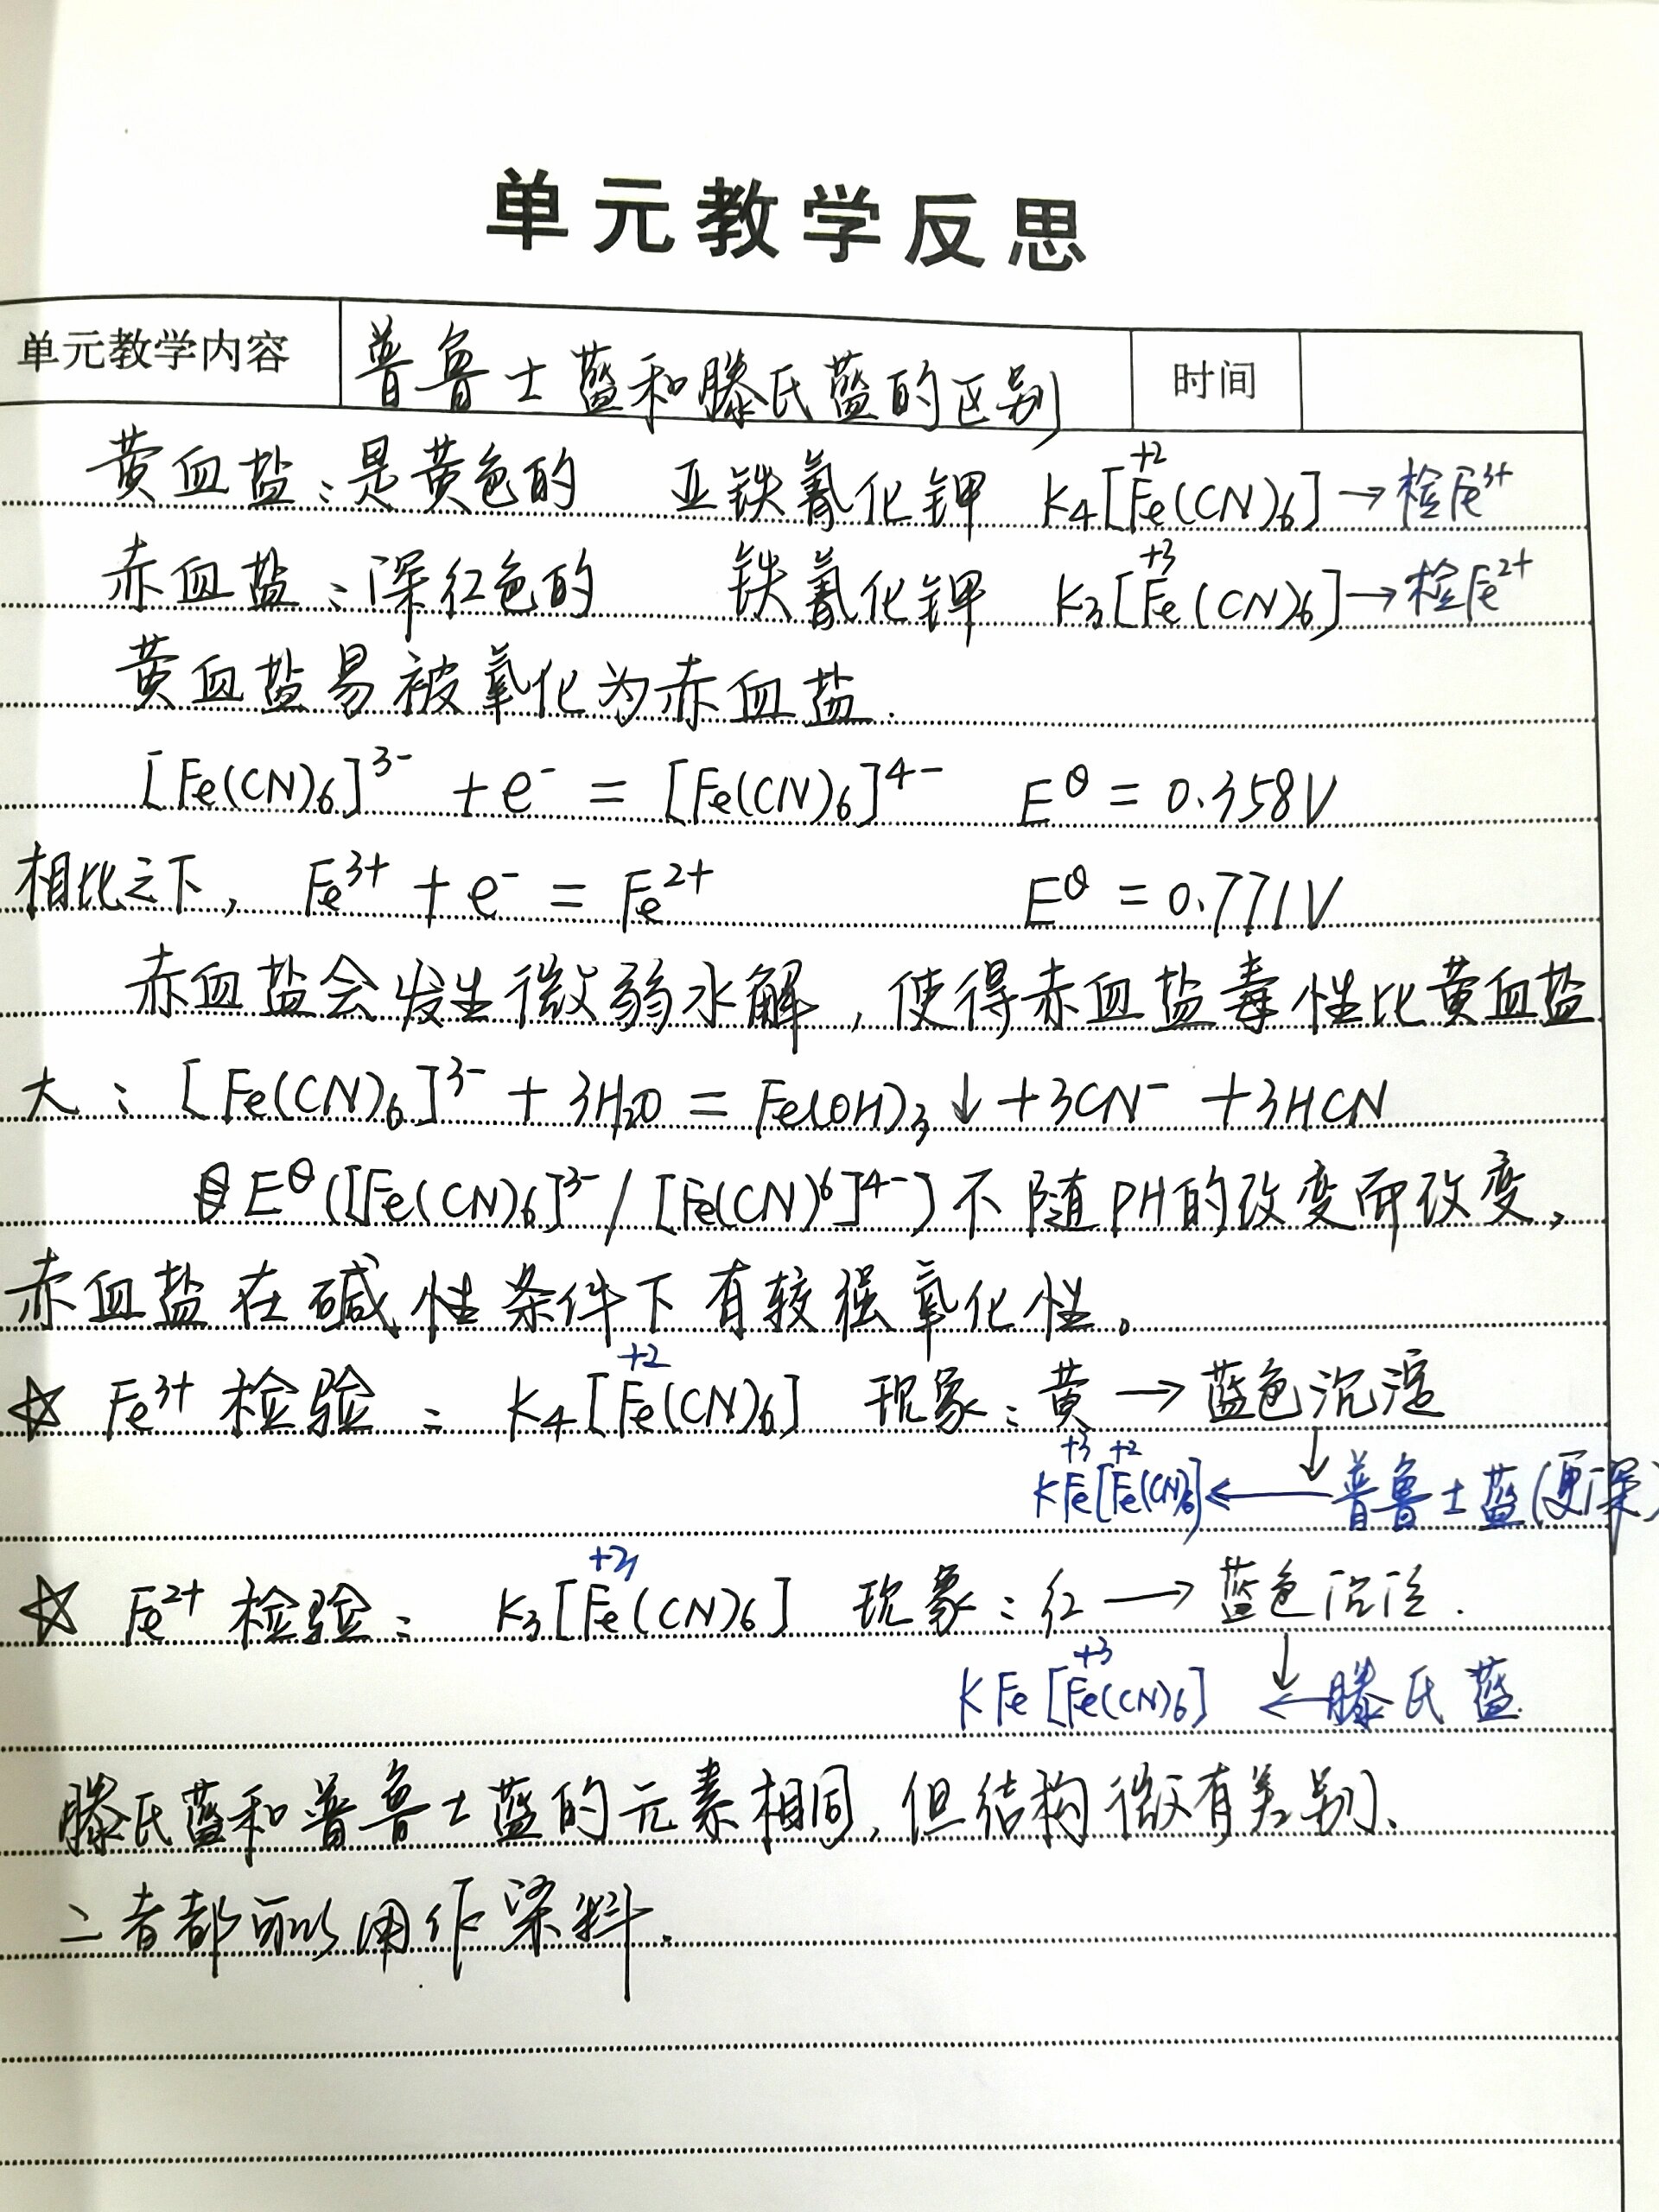 单元教学反思
单元教学内容 普鲁士蓝和滕氏蓝的区别 时间
黄血盐：是黄色的 亚铁氰化钾 K₄[Fe(CN)₆] → 检Fe³⁺
+2
赤血盐：深红色的 铁氰化钾 K₃[Fe(CN)₆] → 检Fe²⁺
+3
黄血盐易被氧化为赤血盐.
[Fe(CN)₆]³⁻ + e⁻ = [Fe(CN)₆]⁴⁻ E^θ = 0.358V
相比之下, Fe³⁺ + e⁻ = Fe²⁺ E^θ = 0.771V
赤血盐会发生微弱水解，使得赤血盐毒性比黄血盐
大：[Fe(CN)₆]³⁻ + 3H₂O = Fe(OH)₃↓ + 3CN⁻ + 3HCN
E^θ([Fe(CN)₆]³⁻/[Fe(CN)⁶]⁴⁻) 不随PH的改变而改变，
赤血盐在碱性条件下有较强氧化性。
+2
☆ Fe³⁺检验：K₄[Fe(CN)₆] 现象：黄 → 蓝色沉淀
↓
+3 +2
KFe[Fe(CN)₆] ← 普鲁士蓝(更深)
+3
☆ Fe²⁺检验：K₃[Fe(CN)₆] 现象：红 → 蓝色沉淀.
↓
+3
KFe[Fe(CN)₆] ← 滕氏蓝
滕氏蓝和普鲁士蓝的元素相同, 但结构微有差别.
二者都可以用作染料.